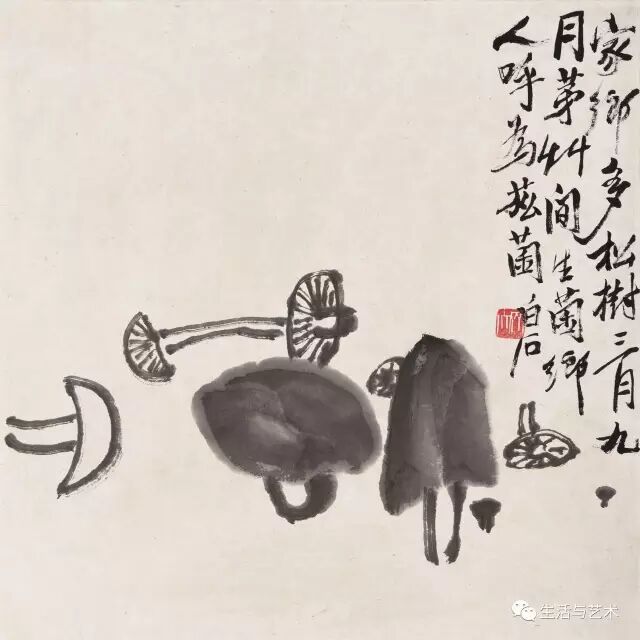 家鄉多松樹三月九
月茅艸間生菌鄉
人呼為菌 白石
生活与艺术